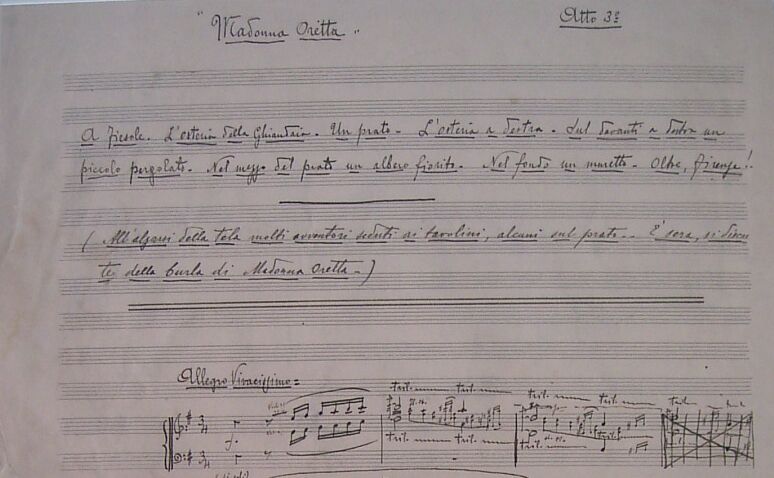 "Madonna Oretta"
Atto 3º
A Fiesole. L'osteria della Ghiandaia. Un prato. L'osteria a destra. Sul davanti a destra un
piccolo pergolato. Nel mezzo del prato un albero fiorito. Nel fondo un muretto. Oltre, Firenze!
(All'alzarsi della tela molti avventori seduti ai tavolini, alcuni sul prato. È sera, si discu
te della burla di Madonna Oretta.)
Allegro Vivacissimo
trat. trat. trat. trat. trat.
trat. trat. trat.
trat.